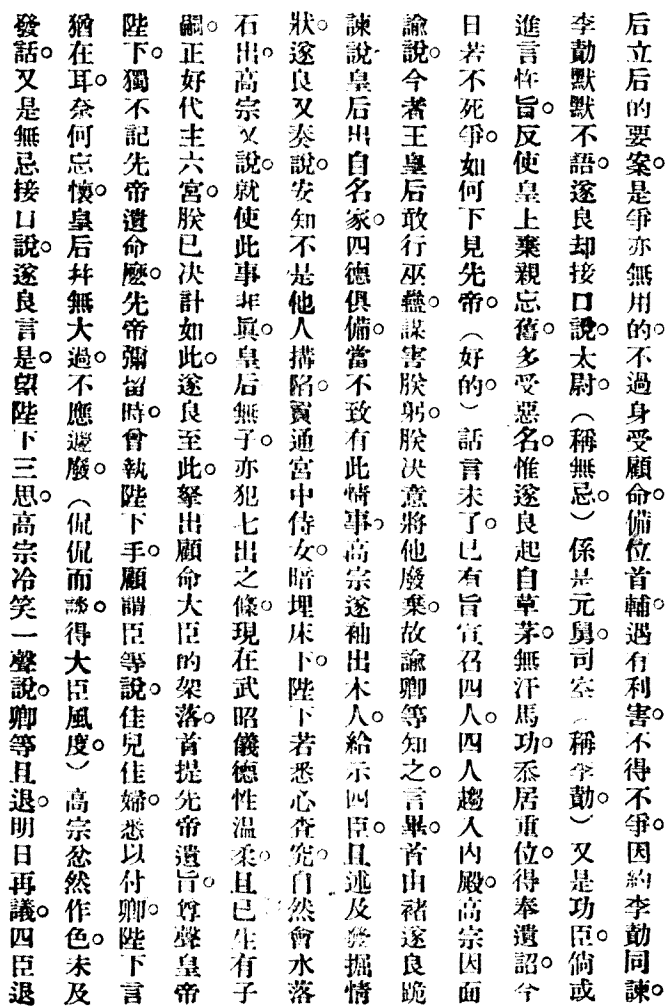 后立后的要案。是爭亦無用的。不過身受顧命。備位首輔。遇有利害。不得不爭。因約李勣同諫。
李勣默默不語。遂良却接口說。太尉（稱無忌。）係是元舅。司空（稱李勣）又是功臣。倘或
進言忤旨。反使皇上棄親忘舊。多受惡名。惟遂良起自草茅。無汗馬功。忝居重位。得奉遺詔。今
日若不死爭。如何下見先帝。（好的。）話言未了。已有旨宣召四人。四人趨入內殿。高宗因面
諭說。今者王皇后敢行巫蠱。謀害朕躬。朕決意將他廢棄。故諭卿等知之。言畢。首由褚遂良跪
諫說。皇后出自名家。四德俱備。當不致有此情事。高宗遂袖出木人。給示四臣。且述及發掘情
狀。遂良又奏說。安知不是他人搆陷。賓通宮中侍女。暗埋床下。陛下若悉心查究。自然會水落
石出。高宗又說。就使此事非眞。皇后無子。亦犯七出之條。現在武昭儀德性溫柔。且已生有子
嗣。正好代主六宮。朕已決計如此。遂良至此。擎出顧命大臣的架落。首提先帝遺旨。尊聲皇帝
陛下。獨不記先帝遺命麽。先帝彌留時。曾執陛下手。顧謂臣等說。佳兒佳婦。悉以付卿。陛下言
猶在耳。奈何忘懷。皇后幷無大過。不應遽廢。（侃侃而談。得大臣風度。）高宗忿然作色。未及
發話。又是無忌接口說。遂良言是。望陛下三思。高宗冷笑一聲說。卿等且退。明日再議。四臣退